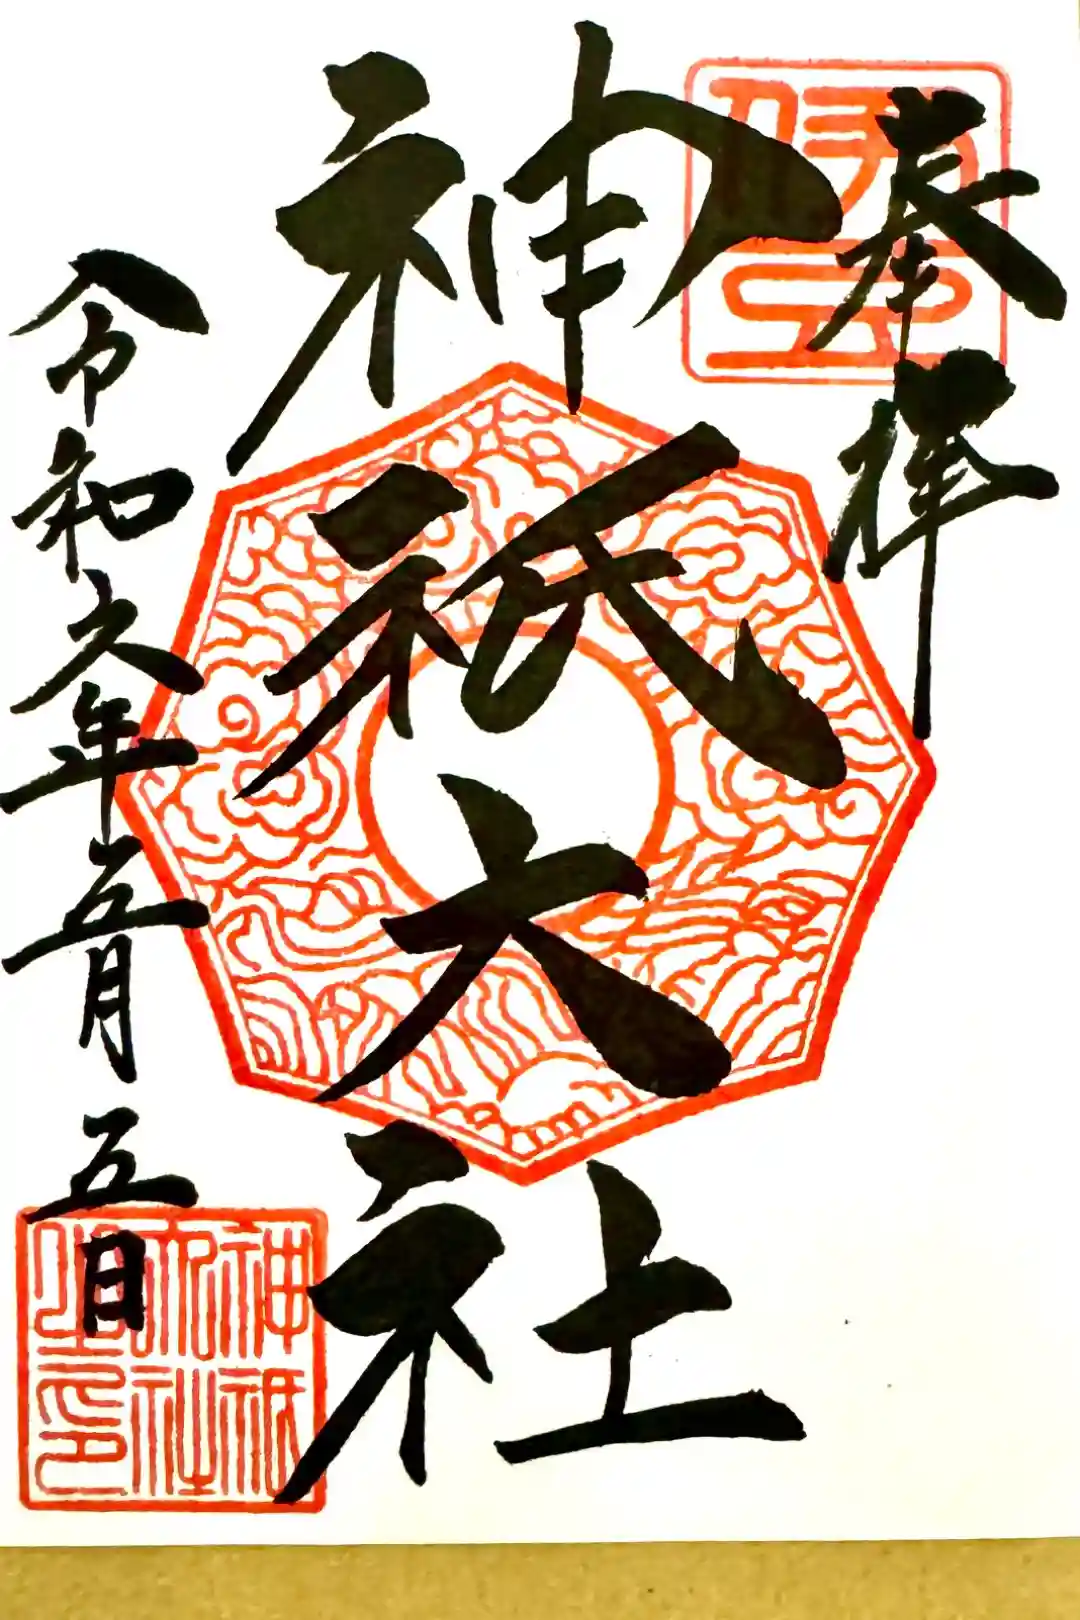 奉拝
伊豆
神祇大社
令和六年五月五日
神祇
大社
之印